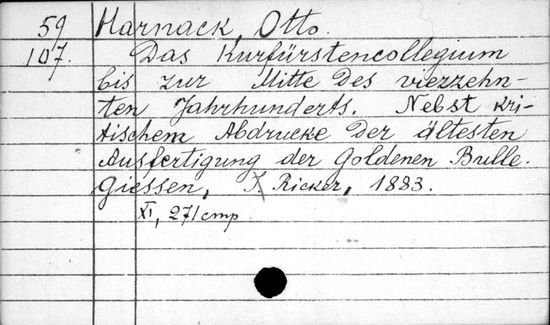 59 Harnack, Otto.
107. Das Kurfürstencollegium
bis zur Mitte des vierzehn-
ten Jahrhunderts. Nebst kri-
tischem Abdrucke der ältesten
Ausfertigung der Goldenen Bulle.
Giessen, J. Ricker, 1883.
XI, 271 cmp.